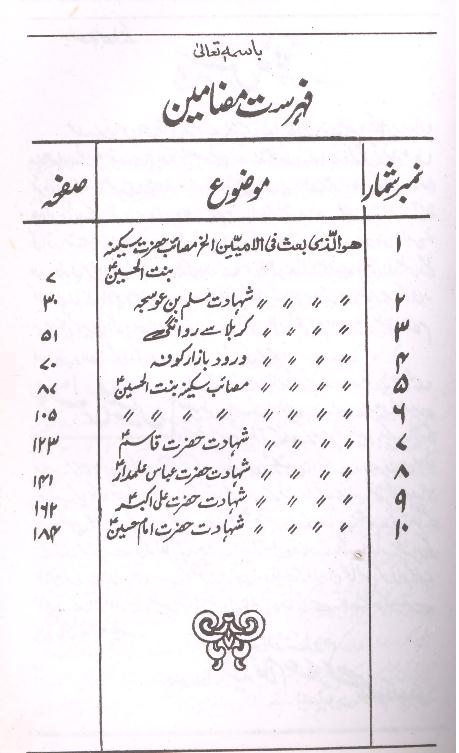 باسمہ تعالیٰ
فہرست مضامین
نمبر شمار موضوع صفحہ
۱ ھو الّذی بعث فی الامیّین الخ مصائب حضرت سکینہ
بنت الحسینؑ ۷
۲ 〃 〃 〃 〃 شہادت مسلم بن عوسجہ ۳۰
۳ 〃 〃 〃 〃 کربلا سے روانگی ۵۱
۴ 〃 〃 〃 〃 ورود بازار کوفہ ۷۰
۵ 〃 〃 〃 〃 مصائب سکینہ بنت الحسینؑ ۸۷
۶ 〃 〃 〃 〃 〃 〃 〃 ۱۰۵
۷ 〃 〃 〃 〃 شہادت حضرت قاسمؑ ۱۲۳
۸ 〃 〃 〃 〃 شہادت حضرت عباس علمدارؑ ۱۴۱
۹ 〃 〃 〃 〃 شہادت حضرت علی اکبرؑ ۱۶۲
۱۰ 〃 〃 〃 〃 شہادت حضرت امام حسینؑ ۱۸۴